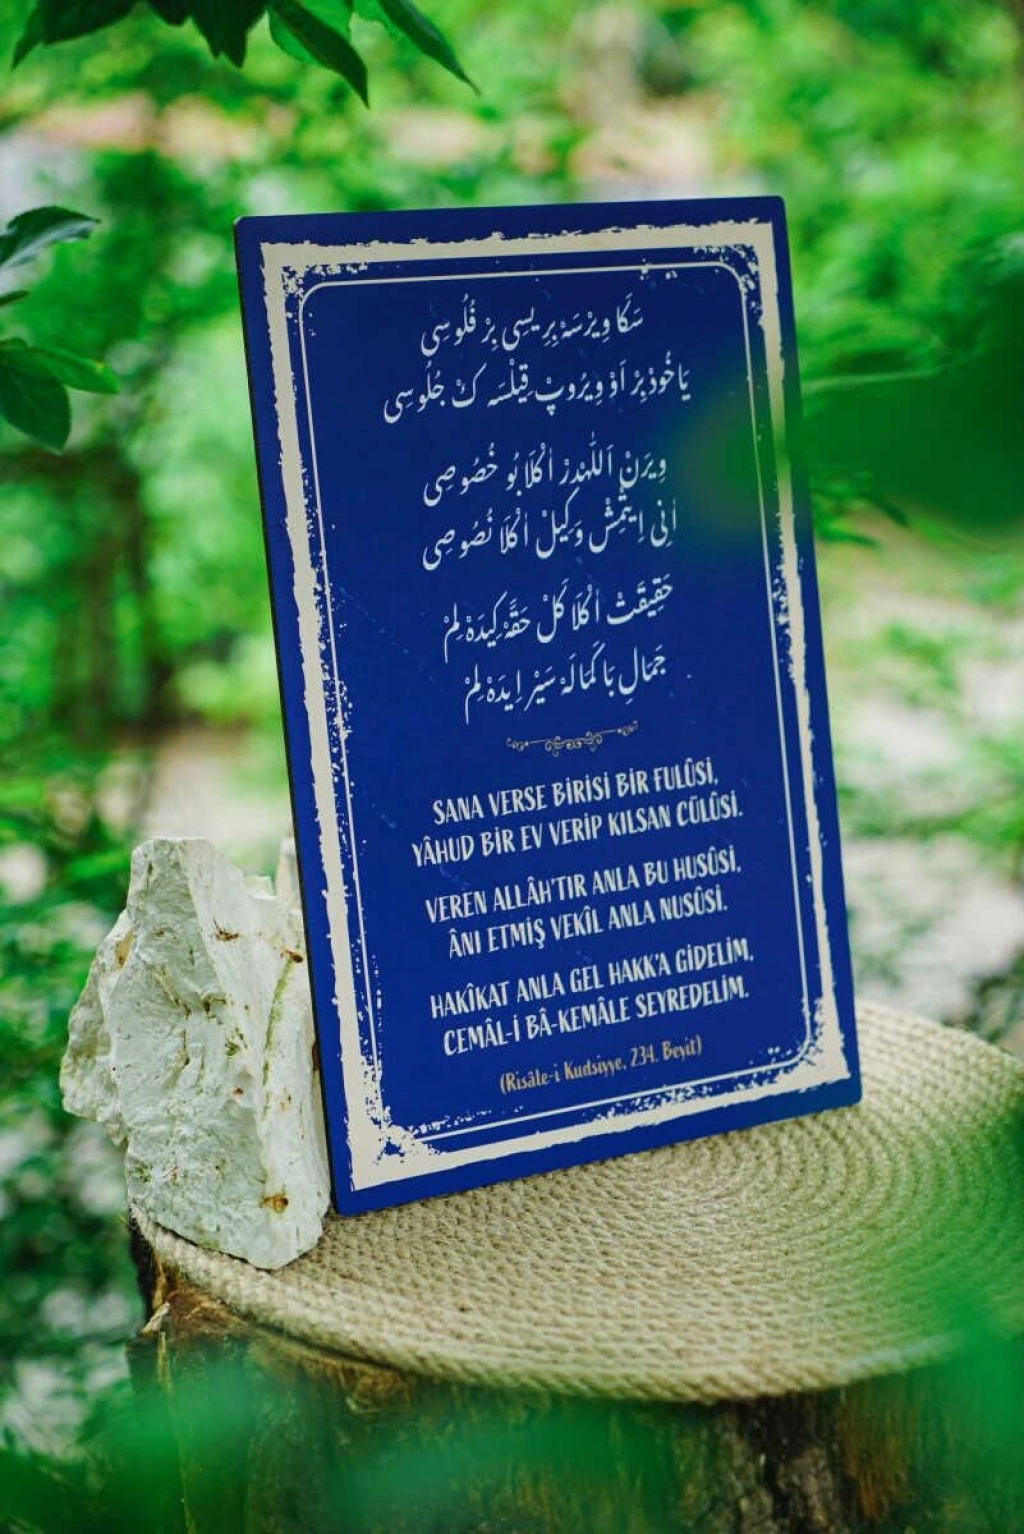 سَكَا وِيرْسَهْ بِرِيسِى بِرْ فُلُوسِى
يَاخُودْ بِرْ اَوْ وِيرُوپْ قِيلْسَه كْ جُلُوسِى
وِيرَنْ اَللّٰهْدِرْ اٰكْلَا بُو خُصُوصِى
اٰنِى اِيتْمِشْ وَكِيلْ اٰكْلَا نُصُوصِى
حَقِيقَتْ اٰكْلَا كَلْ حَقَّهْ كِيدَهْ لِمْ
جَمَالِ بَا كَمَالَهْ سَيْرْ اِيدَهْ لِمْ
SANA VERSE BİRİSİ BİR FULÛSİ,
YÂHUD BİR EV VERİP KILSAN CÜLÛSİ.
VEREN ALLÂH'TIR ANLA BU HUSÛSİ,
ÂNI ETMİŞ VEKÎL ANLA NUSÛSİ.
HAKÎKAT ANLA GEL HAKK'A GİDELİM,
CEMÂL-İ BÂ-KEMÂLE SEYREDELİM.
(Risâle-i Kudsiyye, 234. Beyit)